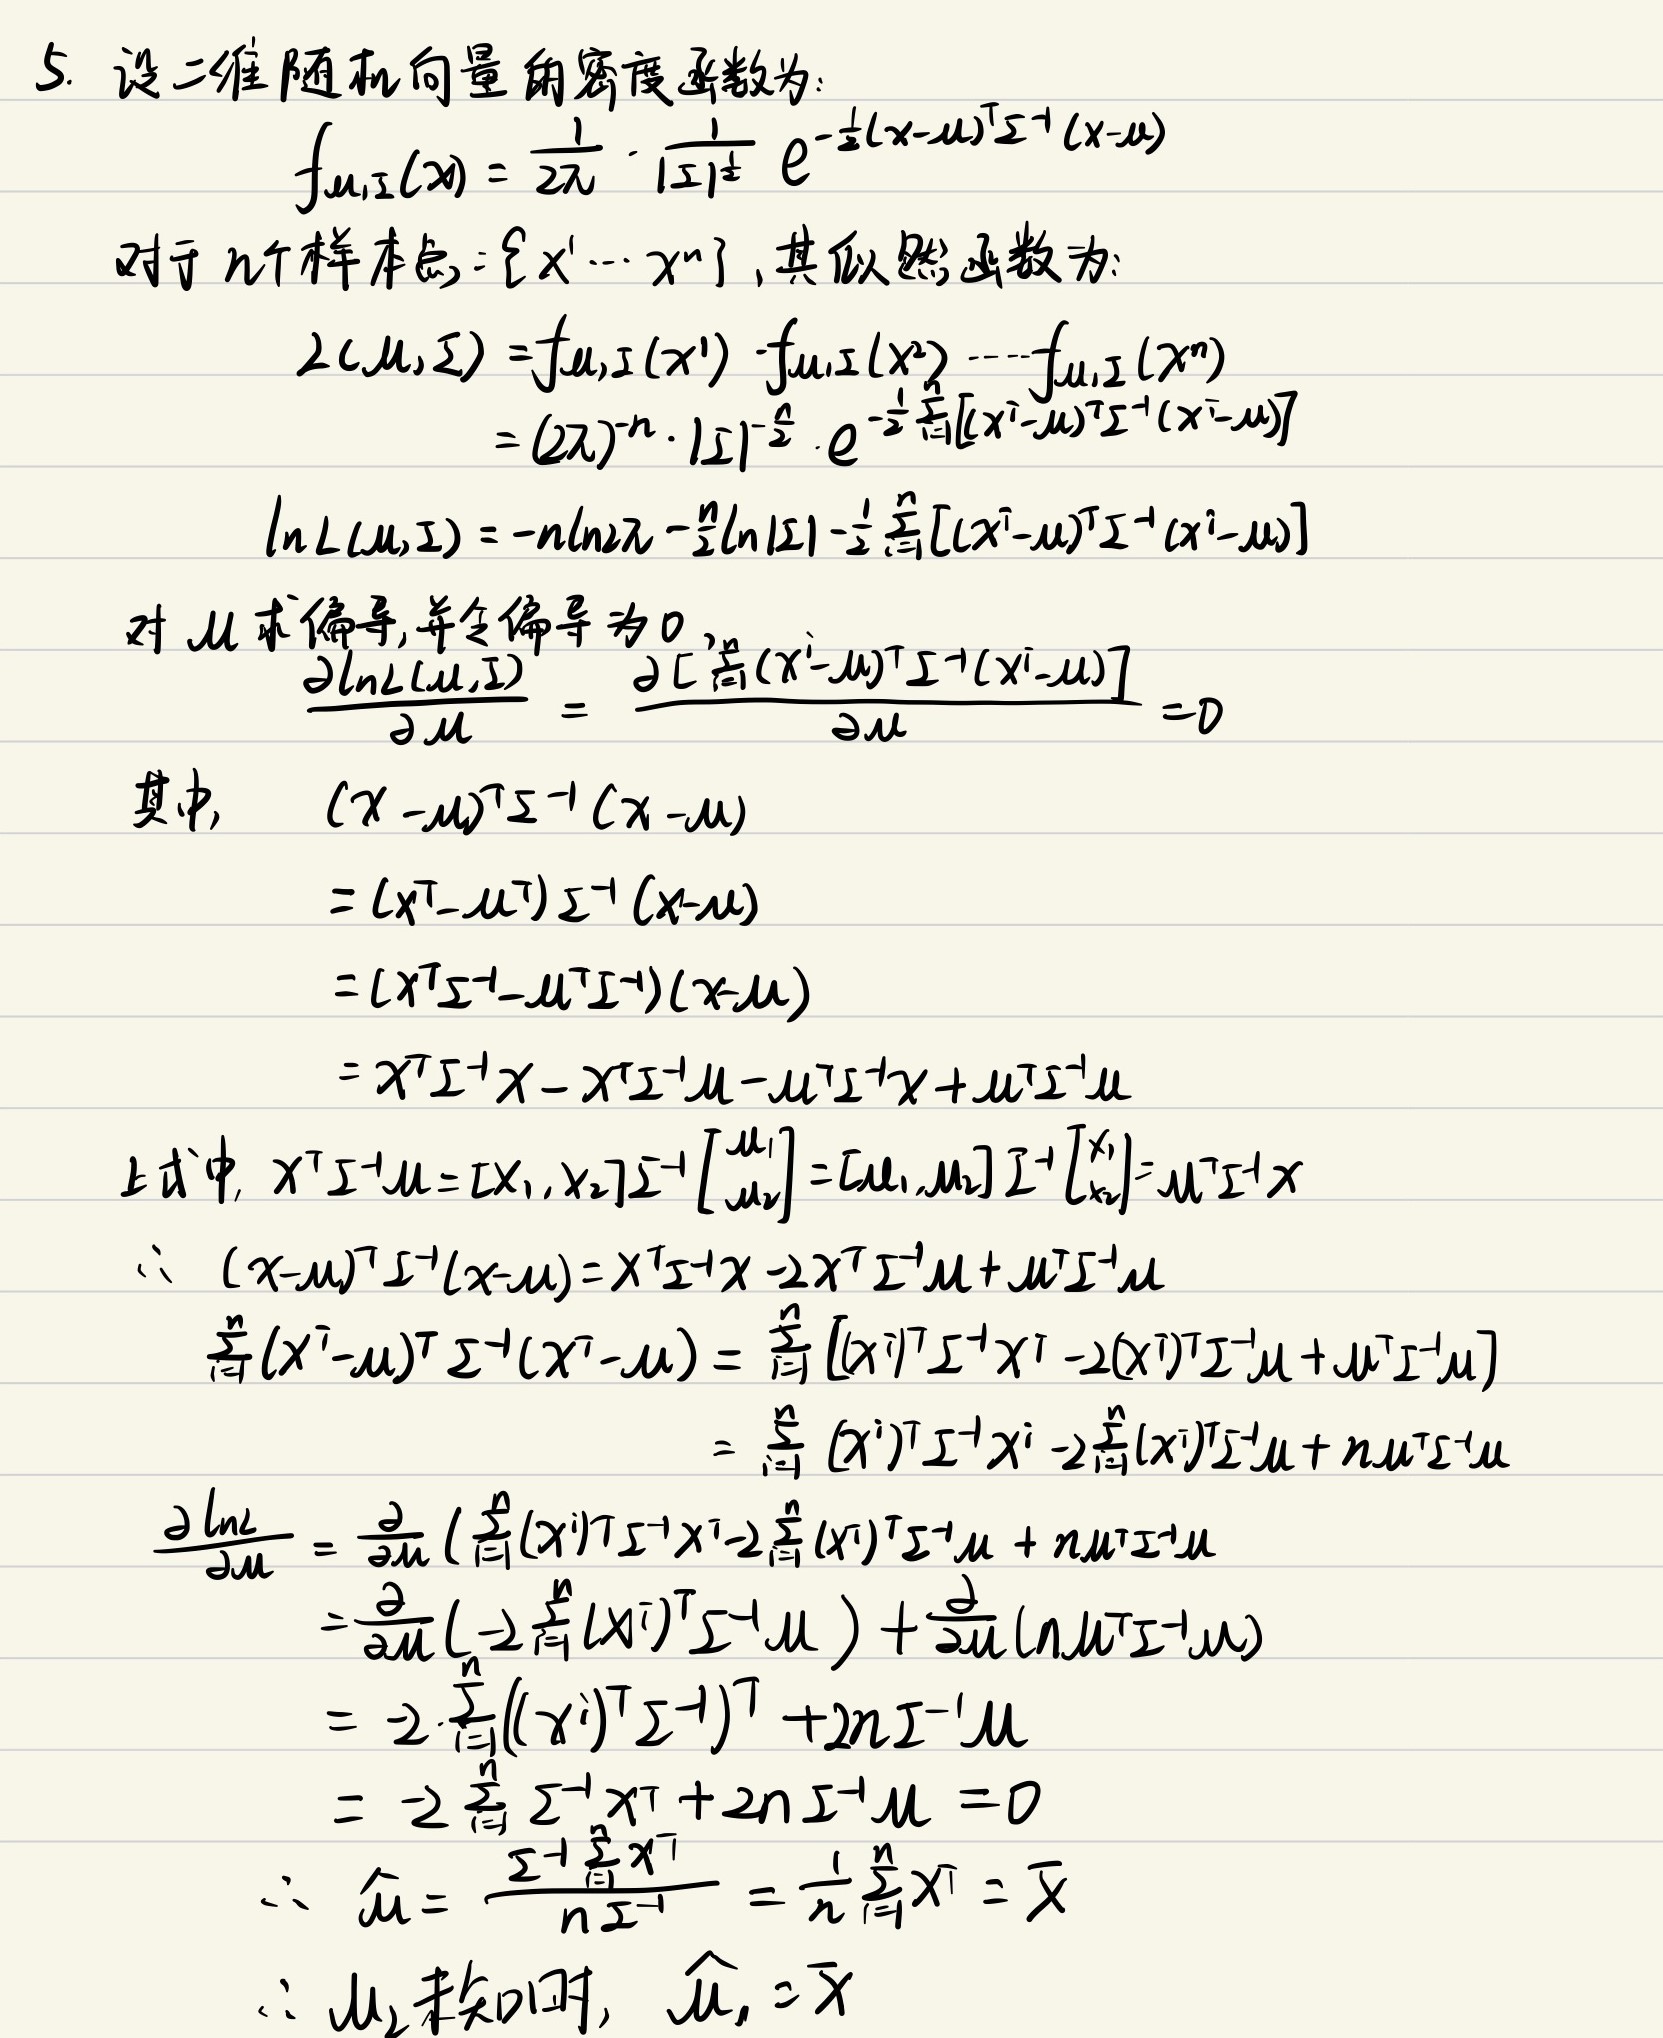 5. 设二维随机向量的密度函数为:
f_{μ,Σ}(x) = \frac{1}{2π} · \frac{1}{|Σ|^{\frac{1}{2}}} e^{-\frac{1}{2}(x-μ)^T Σ^{-1} (x-μ)}
对于n个样本点:{x^1 … x^n},其似然函数为:
L(μ,Σ) = f_{μ,Σ}(x^1) · f_{μ,Σ}(x^2) ---- f_{μ,Σ}(x^n)
= (2π)^{-n} · |Σ|^{-\frac{n}{2}} · e^{-\frac{1}{2} \sum_{i=1}^{n} [(x^i-μ)^T Σ^{-1} (x^i-μ)]}
ln L(μ,Σ) = -n ln2π - \frac{n}{2} ln|Σ| - \frac{1}{2} \sum_{i=1}^{n} [(x^i-μ)^T Σ^{-1} (x^i-μ)]
对μ求偏导,并令偏导为0,
\frac{∂lnL(μ,Σ)}{∂μ} = \frac{∂[\sum_{i=1}^{n} (x^i-μ)^T Σ^{-1} (x^i-μ)]}{∂μ} = 0
其中, (x-μ)^T Σ^{-1} (x-μ)
= (x^T-μ^T) Σ^{-1} (x-μ)
= (x^T Σ^{-1} - μ^T Σ^{-1})(x-μ)
= x^T Σ^{-1} x - x^T Σ^{-1} μ - μ^T Σ^{-1} x + μ^T Σ^{-1} μ
上式中, x^T Σ^{-1} μ = [x_1, x_2] Σ^{-1} \begin{bmatrix} μ_1 \\ μ_2 \end{bmatrix} = [μ_1, μ_2] Σ^{-1} \begin{bmatrix} x_1 \\ x_2 \end{bmatrix} = μ^T Σ^{-1} x
∴ (x-μ)^T Σ^{-1} (x-μ) = x^T Σ^{-1} x - 2x^T Σ^{-1} μ + μ^T Σ^{-1} μ
\sum_{i=1}^{n} (x^i-μ)^T Σ^{-1} (x^i-μ) = \sum_{i=1}^{n} [(x^i)^T Σ^{-1} x^i - 2(x^i)^T Σ^{-1} μ + μ^T Σ^{-1} μ]
= \sum_{i=1}^{n} (x^i)^T Σ^{-1} x^i - 2\sum_{i=1}^{n} (x^i)^T Σ^{-1} μ + nμ^T Σ^{-1} μ
\frac{∂lnL}{∂μ} = \frac{∂}{∂μ} (\sum_{i=1}^{n} (x^i)^T Σ^{-1} x^i - 2\sum_{i=1}^{n} (x^i)^T Σ^{-1} μ + nμ^T Σ^{-1} μ
= \frac{∂}{∂μ} (-2\sum_{i=1}^{n} (x^i)^T Σ^{-1} μ) + \frac{∂}{∂μ} (nμ^T Σ^{-1} μ)
= -2·\sum_{i=1}^{n} ((x^i)^T Σ^{-1})^T + 2nΣ^{-1} μ
= -2 \sum_{i=1}^{n} Σ^{-1} x^i + 2nΣ^{-1} μ = 0
∴ \hat{μ} = \frac{Σ^{-1} \sum_{i=1}^{n} x^i}{nΣ^{-1}} = \frac{1}{n} \sum_{i=1}^{n} x^i = \bar{x}
∴ μ_2未知时, \hat{μ}_1 = \bar{x}